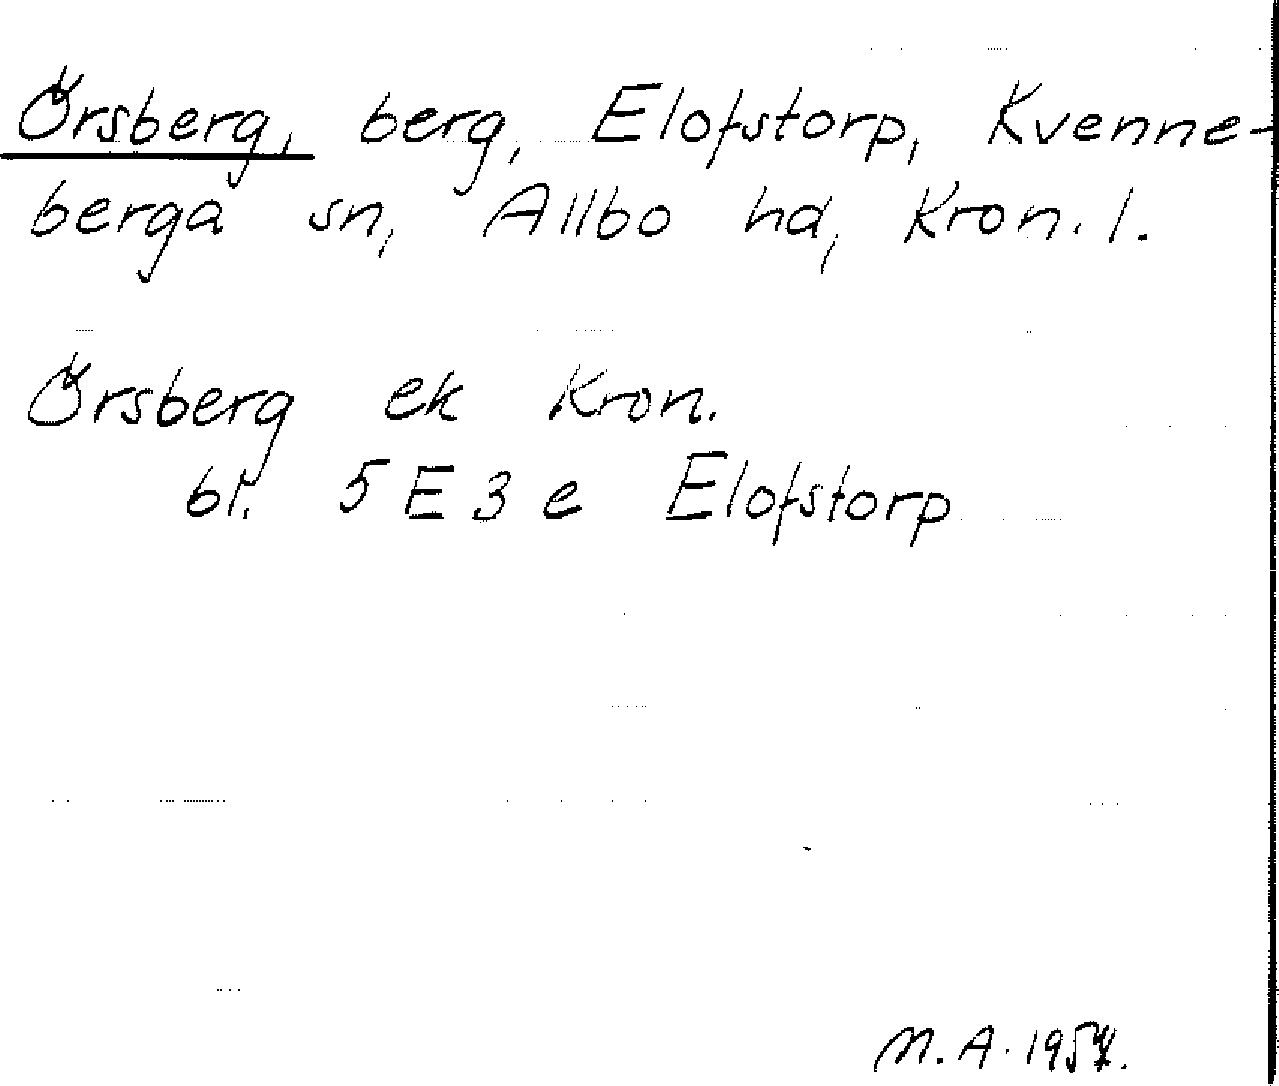 Örsberg, berg, Elofstorp, Kvenne-
berga sn, Allbo hd, Kron. l.
Örsberg ek Kron.
bl. 5 E 3 e Elofstorp
M. A. 1954.